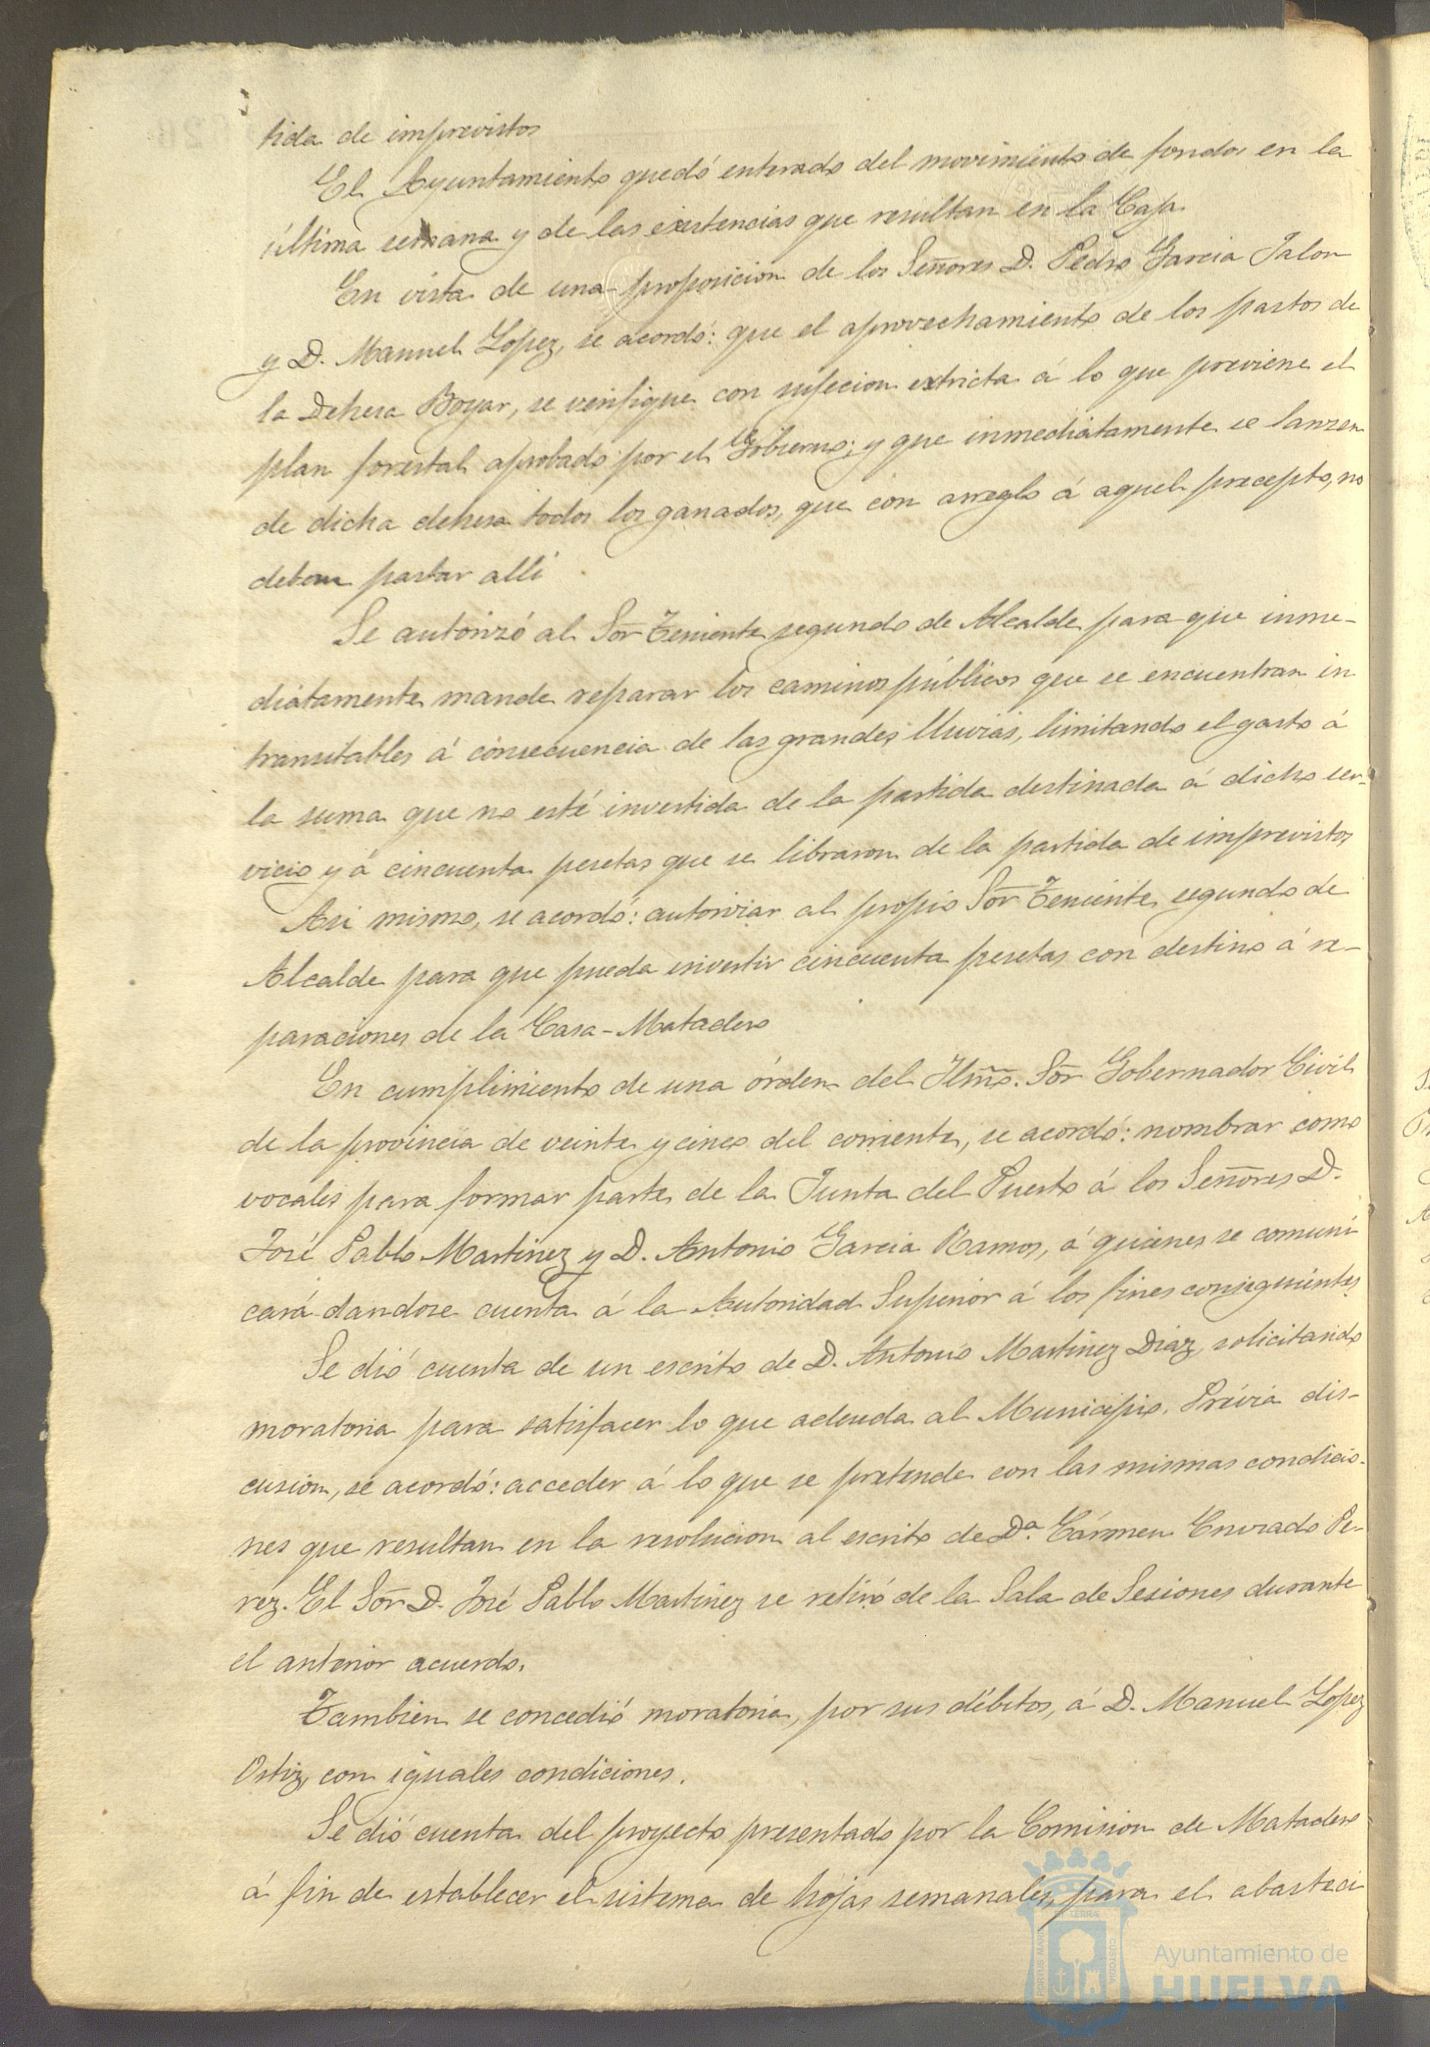 tida de imprevistos
El Ayuntamiento quedó enterado del movimiento de fondos en la
última semana y de las existencias que resultan en la Caja.
En vista de una proposicion de los Señores D. Pedro Garcia Jalon
y D. Manuel Lopez, se acordó: que el aprovechamiento de los pastos de
la Dehesa Boyar, se verifique con sujecion extricta á lo que previene el
plan forestal aprobado por el Gobierno; y que inmediatamente se lanzen
de dicha dehesa todos los ganados, que con arreglo á aquel precepto, no
deban pastar allí
Se autorizó al Sor Teniente segundo de Alcalde para que inme-
diatamente mande reparar los caminos públicos que se encuentran in
transitables á consecuencia de las grandes lluvias, limitando el gasto á
la suma que no esté invertida de la partida destinada á dicho ser-
vicio y á cincuenta pesetas que se libraron de la partida de imprevistos
Asi mismo, se acordó: autorizar al propio Sor Teniente segundo de
Alcalde para que pueda invertir cincuenta pesetas con destino á re-
paraciones de la Casa-Matadero
En cumplimiento de una órden del Ylmo. Sor Gobernador Civil
de la provincia de veinte y cinco del corriente, se acordó: nombrar como
vocales para formar parte de la Junta del Puerto á los Señores D.
José Pablo Martinez y D. Antonio Garcia Ramos, á quienes se comuni
cará dandose cuenta á la Autoridad Superior á los fines consiguientes
Se dió cuenta de un escrito de D. Antonio Martinez Diaz, solicitando
moratoria para satisfacer lo que adeuda al Municipio. Prévia dis-
cusion, se acordó: acceder á lo que se pretende con las mismas condicio-
nes que resultan en la resolucion al escrito de Da. Cármen Enviado Pe-
rez. El Sor D. José Pablo Martinez se retiró de la Sala de Sesiones durante
el anterior acuerdo.
Tambien se concedió moratoria, por sus débitos, á D. Manuel Lopez
Ortiz, con iguales condiciones.
Se dió cuenta del proyecto presentado por la Comision de Matadero
á fin de establecer el sistema de hojas semanales, para el abasteci
Ayuntamiento de
HUELVA